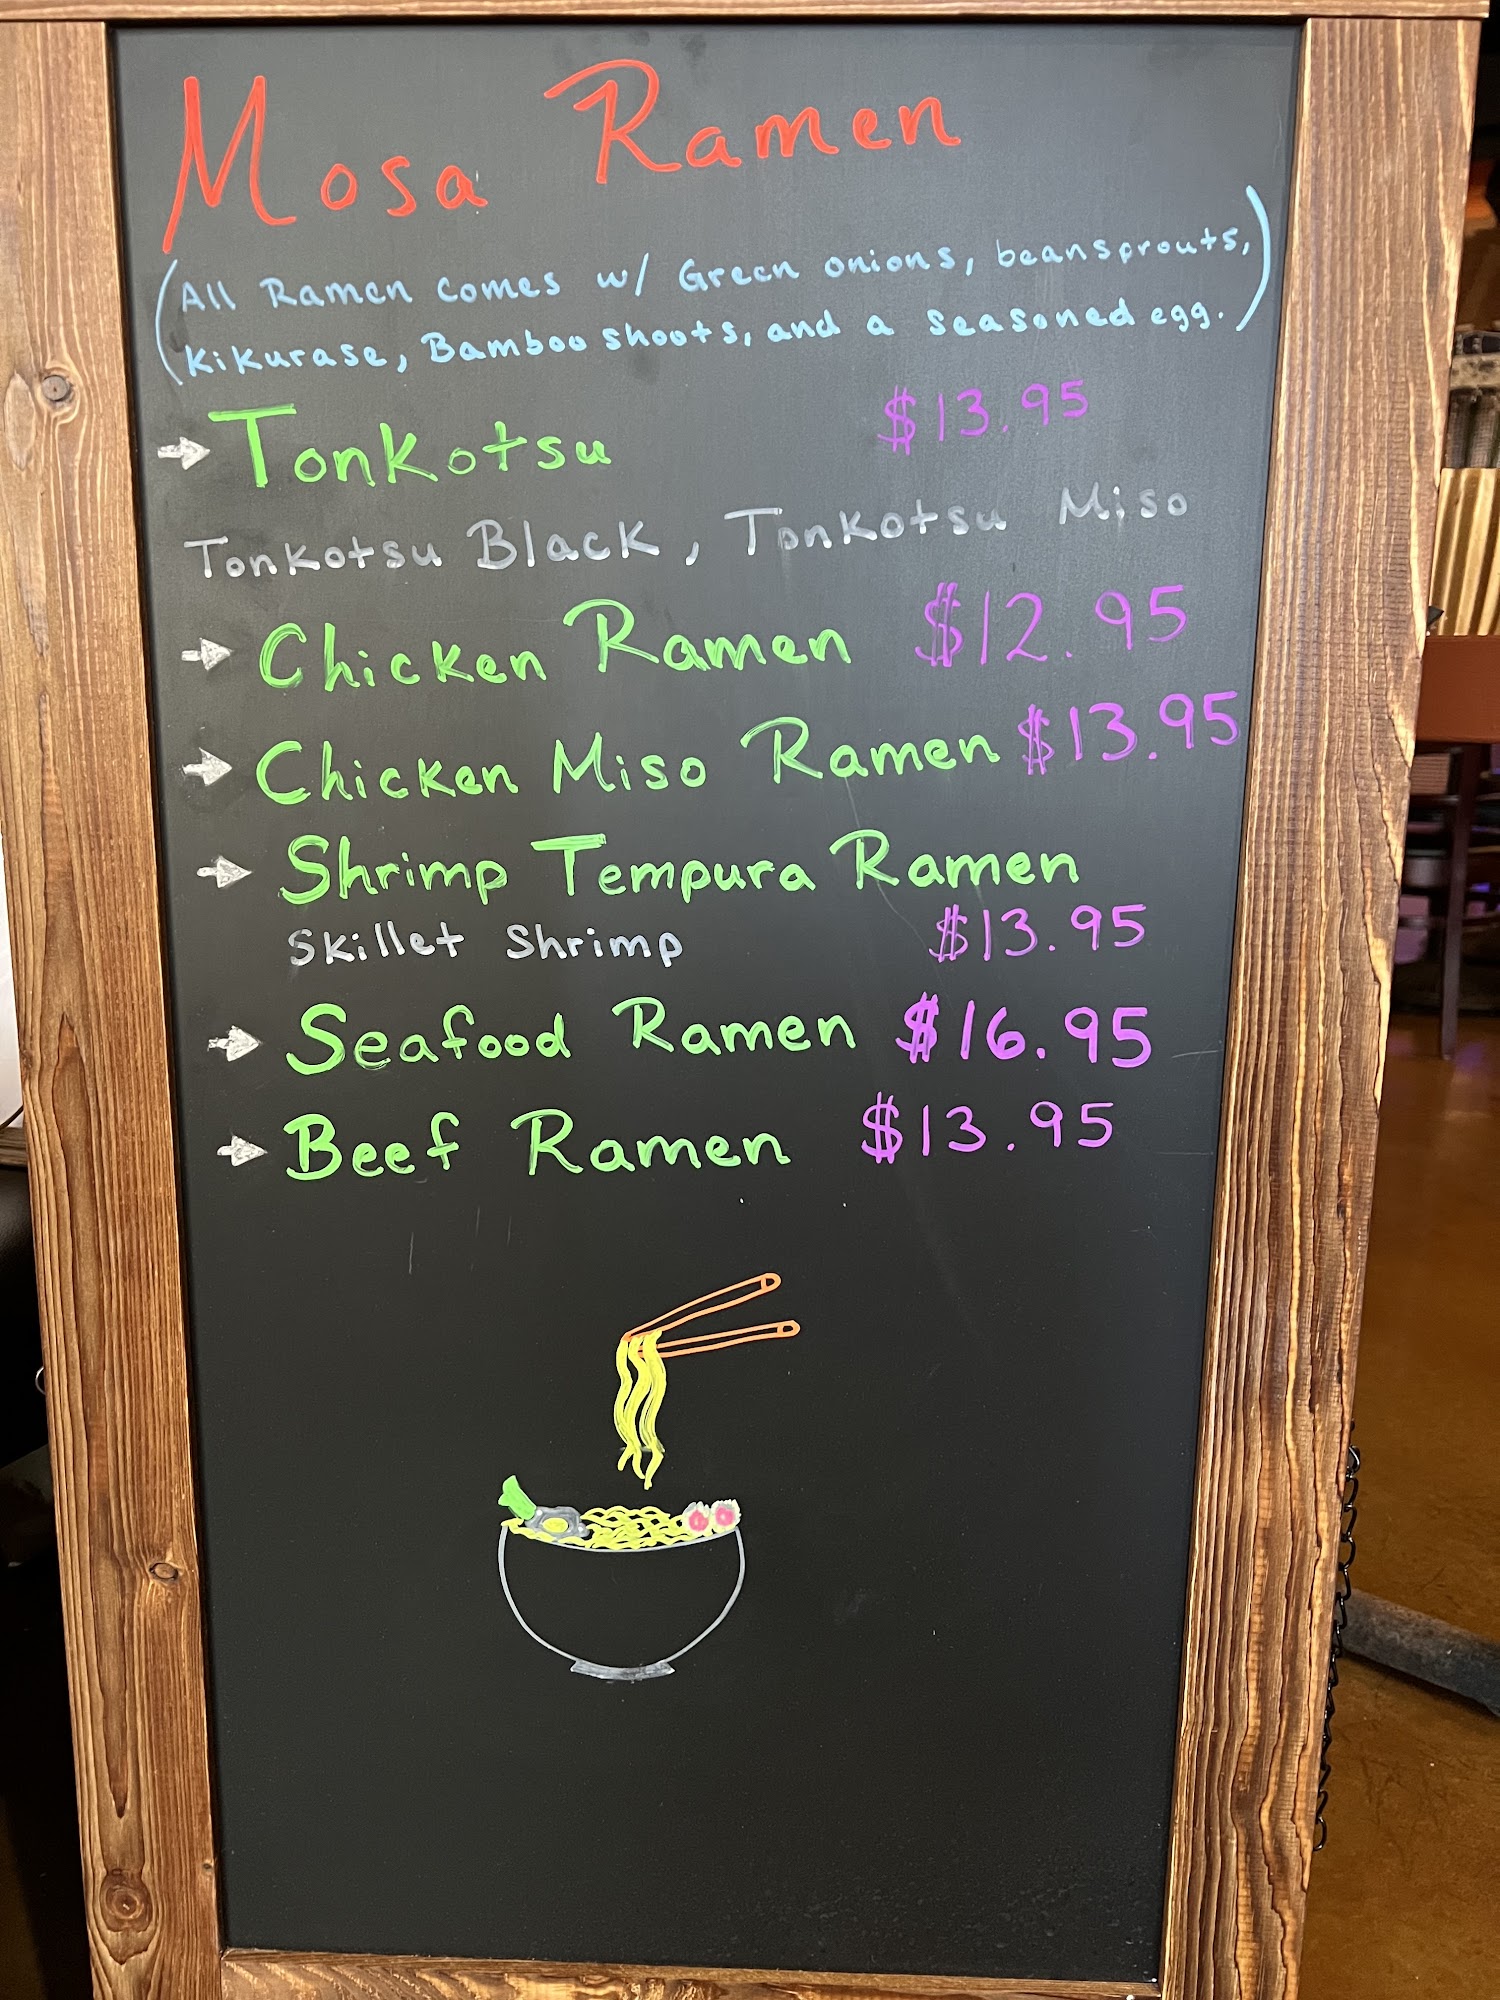 Mosa Ramen
(All Ramen comes w/ Green onions, beansprouts,
Kikurase, Bamboo shoots, and a seasoned egg.)
Tonkotsu $13.95
Tonkotsu Black, Tonkotsu Miso
Chicken Ramen $12.95
Chicken Miso Ramen $13.95
Shrimp Tempura Ramen
Skillet Shrimp $13.95
Seafood Ramen $16.95
Beef Ramen $13.95